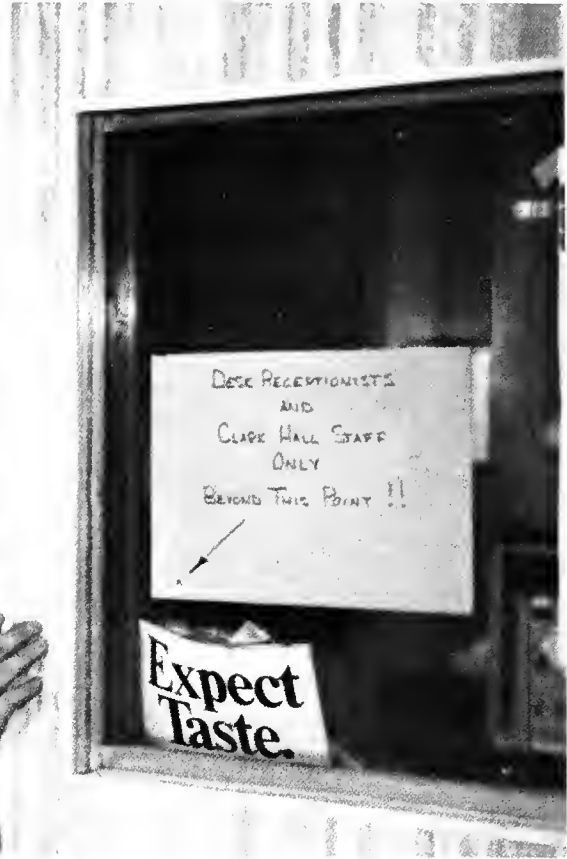 DESK RECEPTIONISTS
AND
CLARK HALL STAFF
ONLY
BEYOND THIS POINT !!
Expect
Taste.